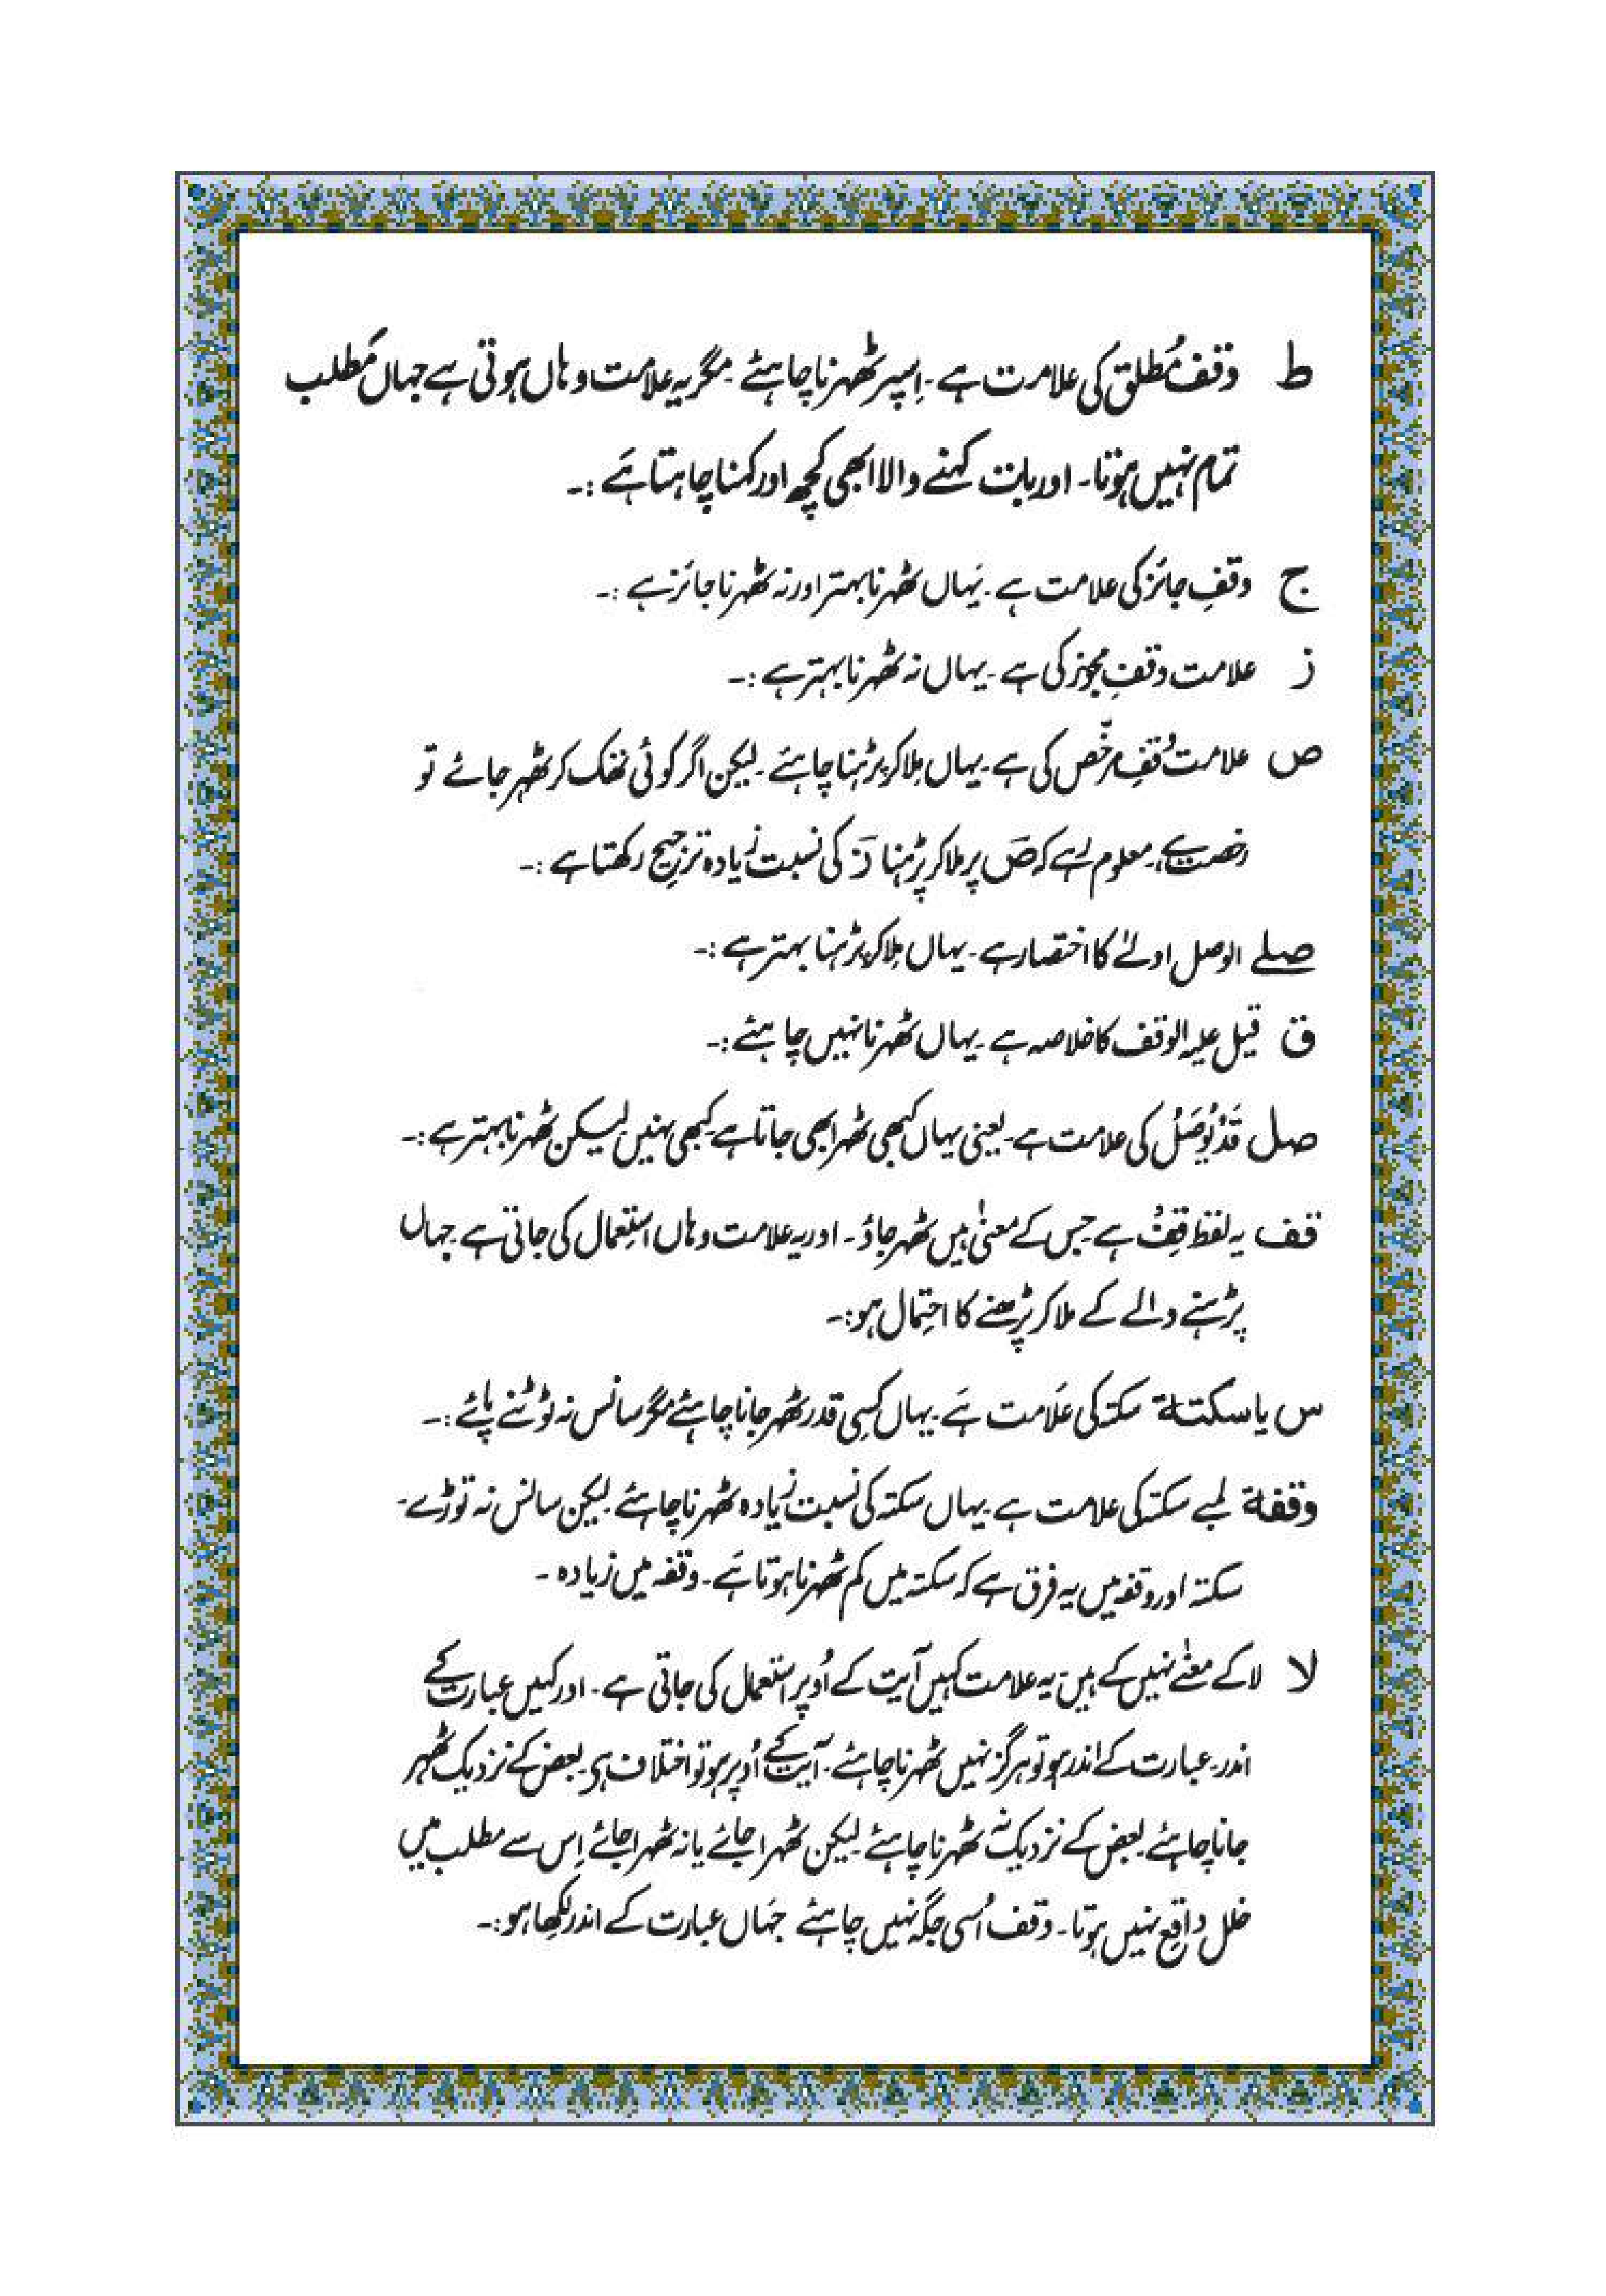 ط وقف مُطلق کی علامت ہے۔ اِسپر ٹھہرنا چاہئے۔ مگر یہ علامت وہاں ہوتی ہے جہاں مَطلب
تمام نہیں ہوتا۔ اور بات کہنے والا ابھی کچھ اور کہنا چاہتا ہَے :۔
ج وقفِ جائز کی علامت ہے۔ یَہاں ٹھہرنا بہتر اور نہ ٹھہرنا جائز ہے :۔
ز علامت وقفِ مجوّز کی ہے۔ یہاں نہ ٹھہرنا بہتر ہے :۔
ص علامت وُقفِ مرخّص کی ہے۔ یہاں مِلا کر پڑہنا چاہئے۔ لیکن اگر کوئی تھک کر ٹھہر جائے تو
رخصت ہے۔ معلوم رہے کہ صَ پر ملا کر پڑہنا زَ کی نسبت زیادہ ترجیح رکھتا ہے :۔
صلے الوصل اولےٰ کا اختصار ہے۔ یہاں مِلا کر پڑہنا بہتر ہے :۔
ق قیل علیہ الوقف کا خلاصہ ہے۔ یہاں ٹھہرنا نہیں چاہئے :۔
صل قَدْ یُوصَلُ کی علامت ہے۔ یعنی یہاں کبھی ٹھہرا بھی جاتا ہے کبھی نہیں۔ لیکن ٹھہرنا بہتر ہے :۔
قف یہ لفظ قِفْ ہے جس کے معنیٰ ہیں ٹھہر جاؤ۔ اور یہ علامت وہاں استِعمال کی جاتی ہے۔ جہاں
پڑہنے والے کے ملا کر پڑھنے کا احتِمال ہو :۔
س یا سکتة سکتہ کی عَلامت ہَے۔ یہاں کسِی قدر ٹھہر جانا چاہئے مگر سانس نہ ٹوٹنے پائے :۔
وقفة لمبے سکتہ کی علامت ہے۔ یہاں سکتہ کی نسبت زیادہ ٹھہرنا چاہئے۔ لیکن سانس نہ توڑے۔
سکتہ اور وقفہ میں یہ فرق ہے کہ سکتہ میں کم ٹھہرنا ہوتا ہَے۔ وقفہ میں زیادہ ۔
لا لا کے معنےٰ نہیں کے ہیں۔ یہ علامت کہیں آیت کے اُوپر استعمال کی جاتی ہے۔ اور کہیں عبارت کے
اندر۔ عبارت کے اندر ہو تو ہرگز نہیں ٹھہرنا چاہئے۔ آیت کے اُوپر ہو تو اختلاف ہی۔ بعض کے نزدیک ٹھہر
جانا چاہئے۔ بعض کے نزدیک نہ ٹھہرنا چاہئے۔ لیکن ٹھہرا جائے یا نہ ٹھہرا جائے اِس سے مطلب میں
خلل واقع نہیں ہوتا۔ وقف اُسی جگہ نہیں چاہئے جہَاں عبارت کے اندر لکِھا ہو :۔